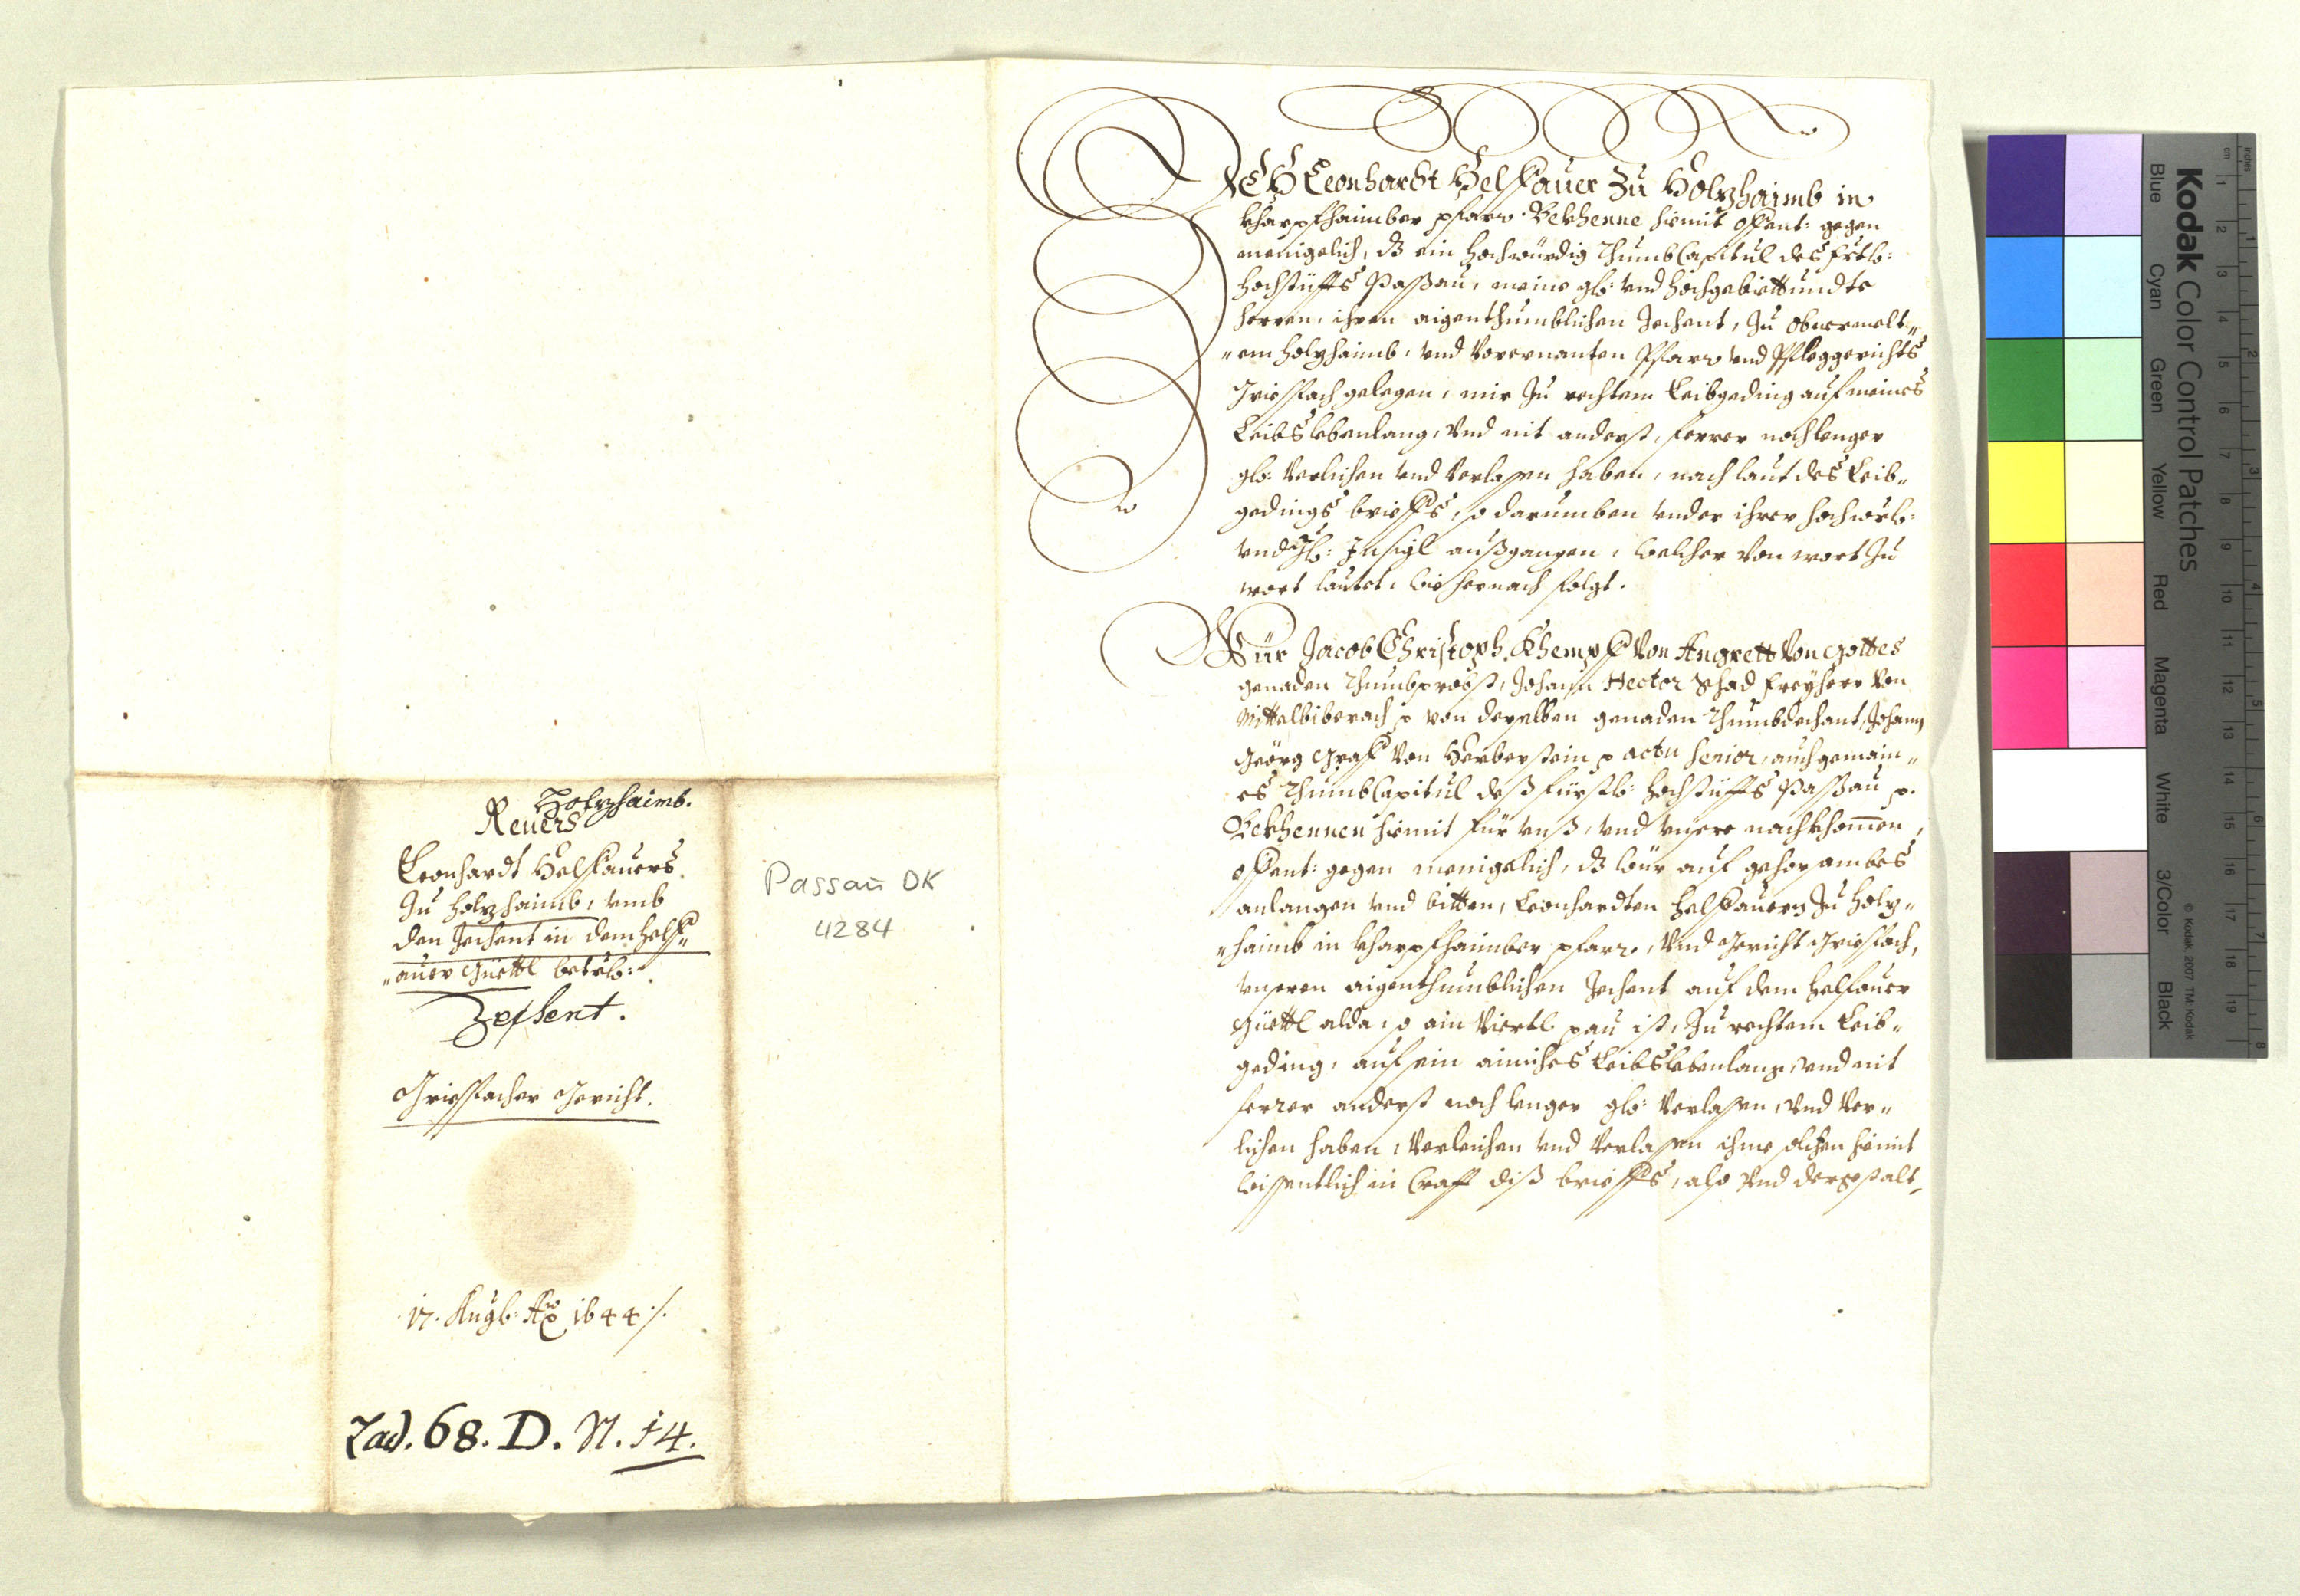 Holzhaimb.
Reuers
Leonhardt Helfauers
Zu Holzhaimb, vmb
den Zechent in dem Helf„
„auer Güettl betrl:
Zechent.
Griesbacher Gericht.
17. Augb: Ao 1644 ./.
Lad. 68. D. N. 14.
Passau DK
4284
ICH Leonhardt Helfauer Zu Holzhaimb in
kharpfhaimber pfarr. Bekhenne hiemit offent: gegen
menigelich, dz ein hochwürdig ThumbCapitul des frtlb:
hochstüffts Passau, meine glb: vnd hochgebiettundte
herren, ihren aigenthumblichen Zechent, Zu obuermelt„
„em holzhaimb, vnd vorernanten Pfarr vnd Pfleggerichts
Griesbach gelegen, mir Zu rechtem Leibgeding auf meines
Leibs lebenlang, vnd nit anderst, ferrer noch lenger
glb: verlichen vnd verlassen haben, nach laut des Leib„
gedings brieffs, so darumben vnder ihrer hochwrlb:
vnd glb: Insigl außgangen, welcher von wort Zu
wort lautet, wie hernach folgt.
Wür Jacob Christoph Khempf von Angrett von Gottes
genaden Thumbprobst, Johann Hector Schad freyherr von
Mittelbiberach p von derselben genaden Thumbdechant, Johann
Geörg Graf von Herberstein p actu senior, auch gemain„
es ThumbCapitul deß fürstlb: hochstüffts Passau p.
Bekhennen hiemit für vnß, vnd vnsere nachkhomen,
offent: gegen menigelich, dz wür auf gehorsambes
anlangen vnd bitten, Leonhardten Helfauern Zu holz„
„haimb in kharpfhaimber pfarr, vnd Gericht Griesbach,
vnseren aigenthumblichen Zechent auf dem Helfauer
Güettl alda, so ain Viertl pau ist, Zu rechtem Leib„
geding, auf sein ainiches Leibs lebenlang, vnd nit
ferrer anderst noch lenger glb: verlassen, vnd ver„
lichen haben, verleichen vnd verlassen ihme solchen hiemit
wissentlich in Craft diß brieffs, also vnd dergestalt,
Kodak Color Control Patches
Blue Cyan Green Yellow Red Magenta White 3/Color Black
© Kodak, 2007 TM: Kodak
inches 1 2 3 4 5 6 7 8
cm 1 2 3 4 5 6 7 8 9 10 11 12 13 14 15 16 17 18 19